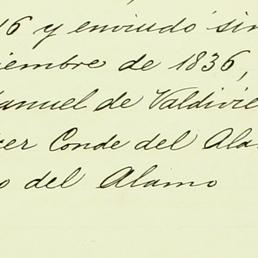 16 y enviudó sin
iembre de 1836,
anuel de Valdivie
cer Conde del Ala
o del Alamo